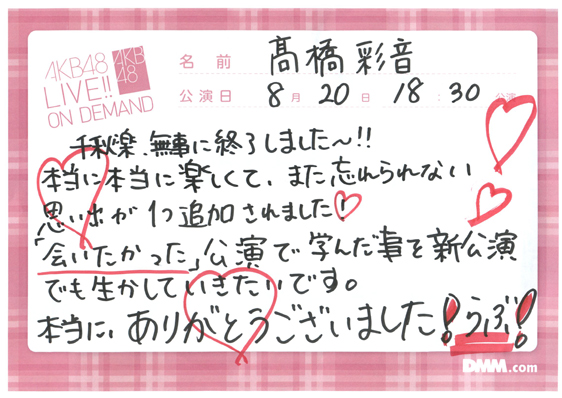 AKB48
LIVE!!
ON DEMAND
AKB
48
名前 髙橋彩音
公演日 8月20日 18:30公演
千秋楽、無事に終了しました〜!!
本当に本当に楽しくて、また忘れられない
思い出が1つ追加されました!
「会いたかった」公演で学んだ事を新公演
でも生かしていきたいです。
本当に、ありがとうございました!らぶ!
DMM.com